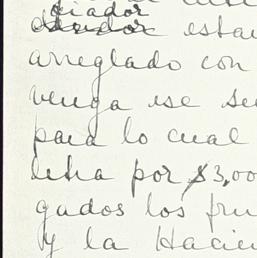 fiador
estar
arreglado con
venga ese se
para lo cual
letra por $3,00
gados los fru
y la Hacien